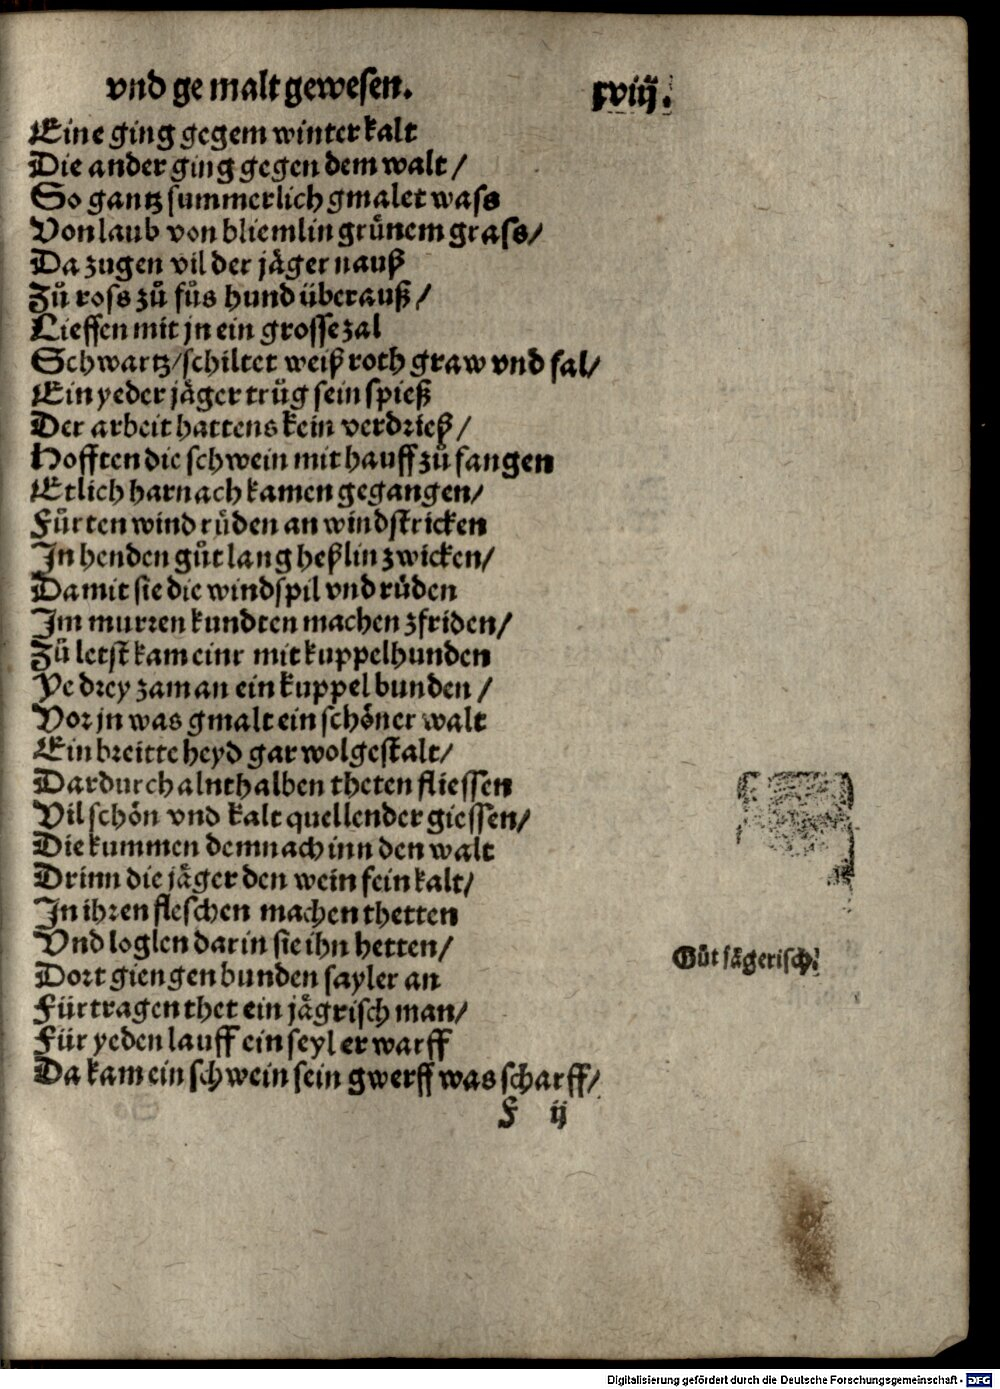 vnd ge malt gewesen. xviij.
Eine ging gegem winter kalt
Die ander ging gegen dem walt /
So gantz summerlich gmalet wass
Von laub von bliemlin grünem grass /
Da zugen vil der jäger nauß
Zů ross zů fůs hund überauß /
Lieffen mit jn ein grosse zal
Schwartz / schiltet weiß roth graw vnd fal /
Ein yeder jäger trůg sein spieß
Der arbeit hattens kein verdrieß /
Hofften die schwein mit hauff zů fangen
Etlich harnach kamen gegangen /
Fürten wind rüden an windstricken
In henden gůt lang heßlin zwicken /
Damit sie die windspil vnd rüden
Im murren kundten machen zfriden /
Zů letst kam einr mit kuppelhunden
Ye drey zam an ein kuppel bunden /
Vor jn was gmalt ein schöner walt
Ein breitte heyd gar wolgestalt /
Dardurch alnthalben theten fliessen
Vil schön vnd kalt quellender giessen /
Die kummen demnach inn den walt
Drinn die jäger den wein fein kalt /
In ihren fleschen machen thetten
Vnd loglen darin sie ihn hetten /
Dort giengen bunden sayler an
Fürtragen thet ein jägrisch man /
Für yeden lauff ein seyl er warff
Da kam ein schwein sein gwerff was scharff /
Gůt jägerisch.
F ij
Digitalisierung gefördert durch die Deutsche Forschungsgemeinschaft - DFG